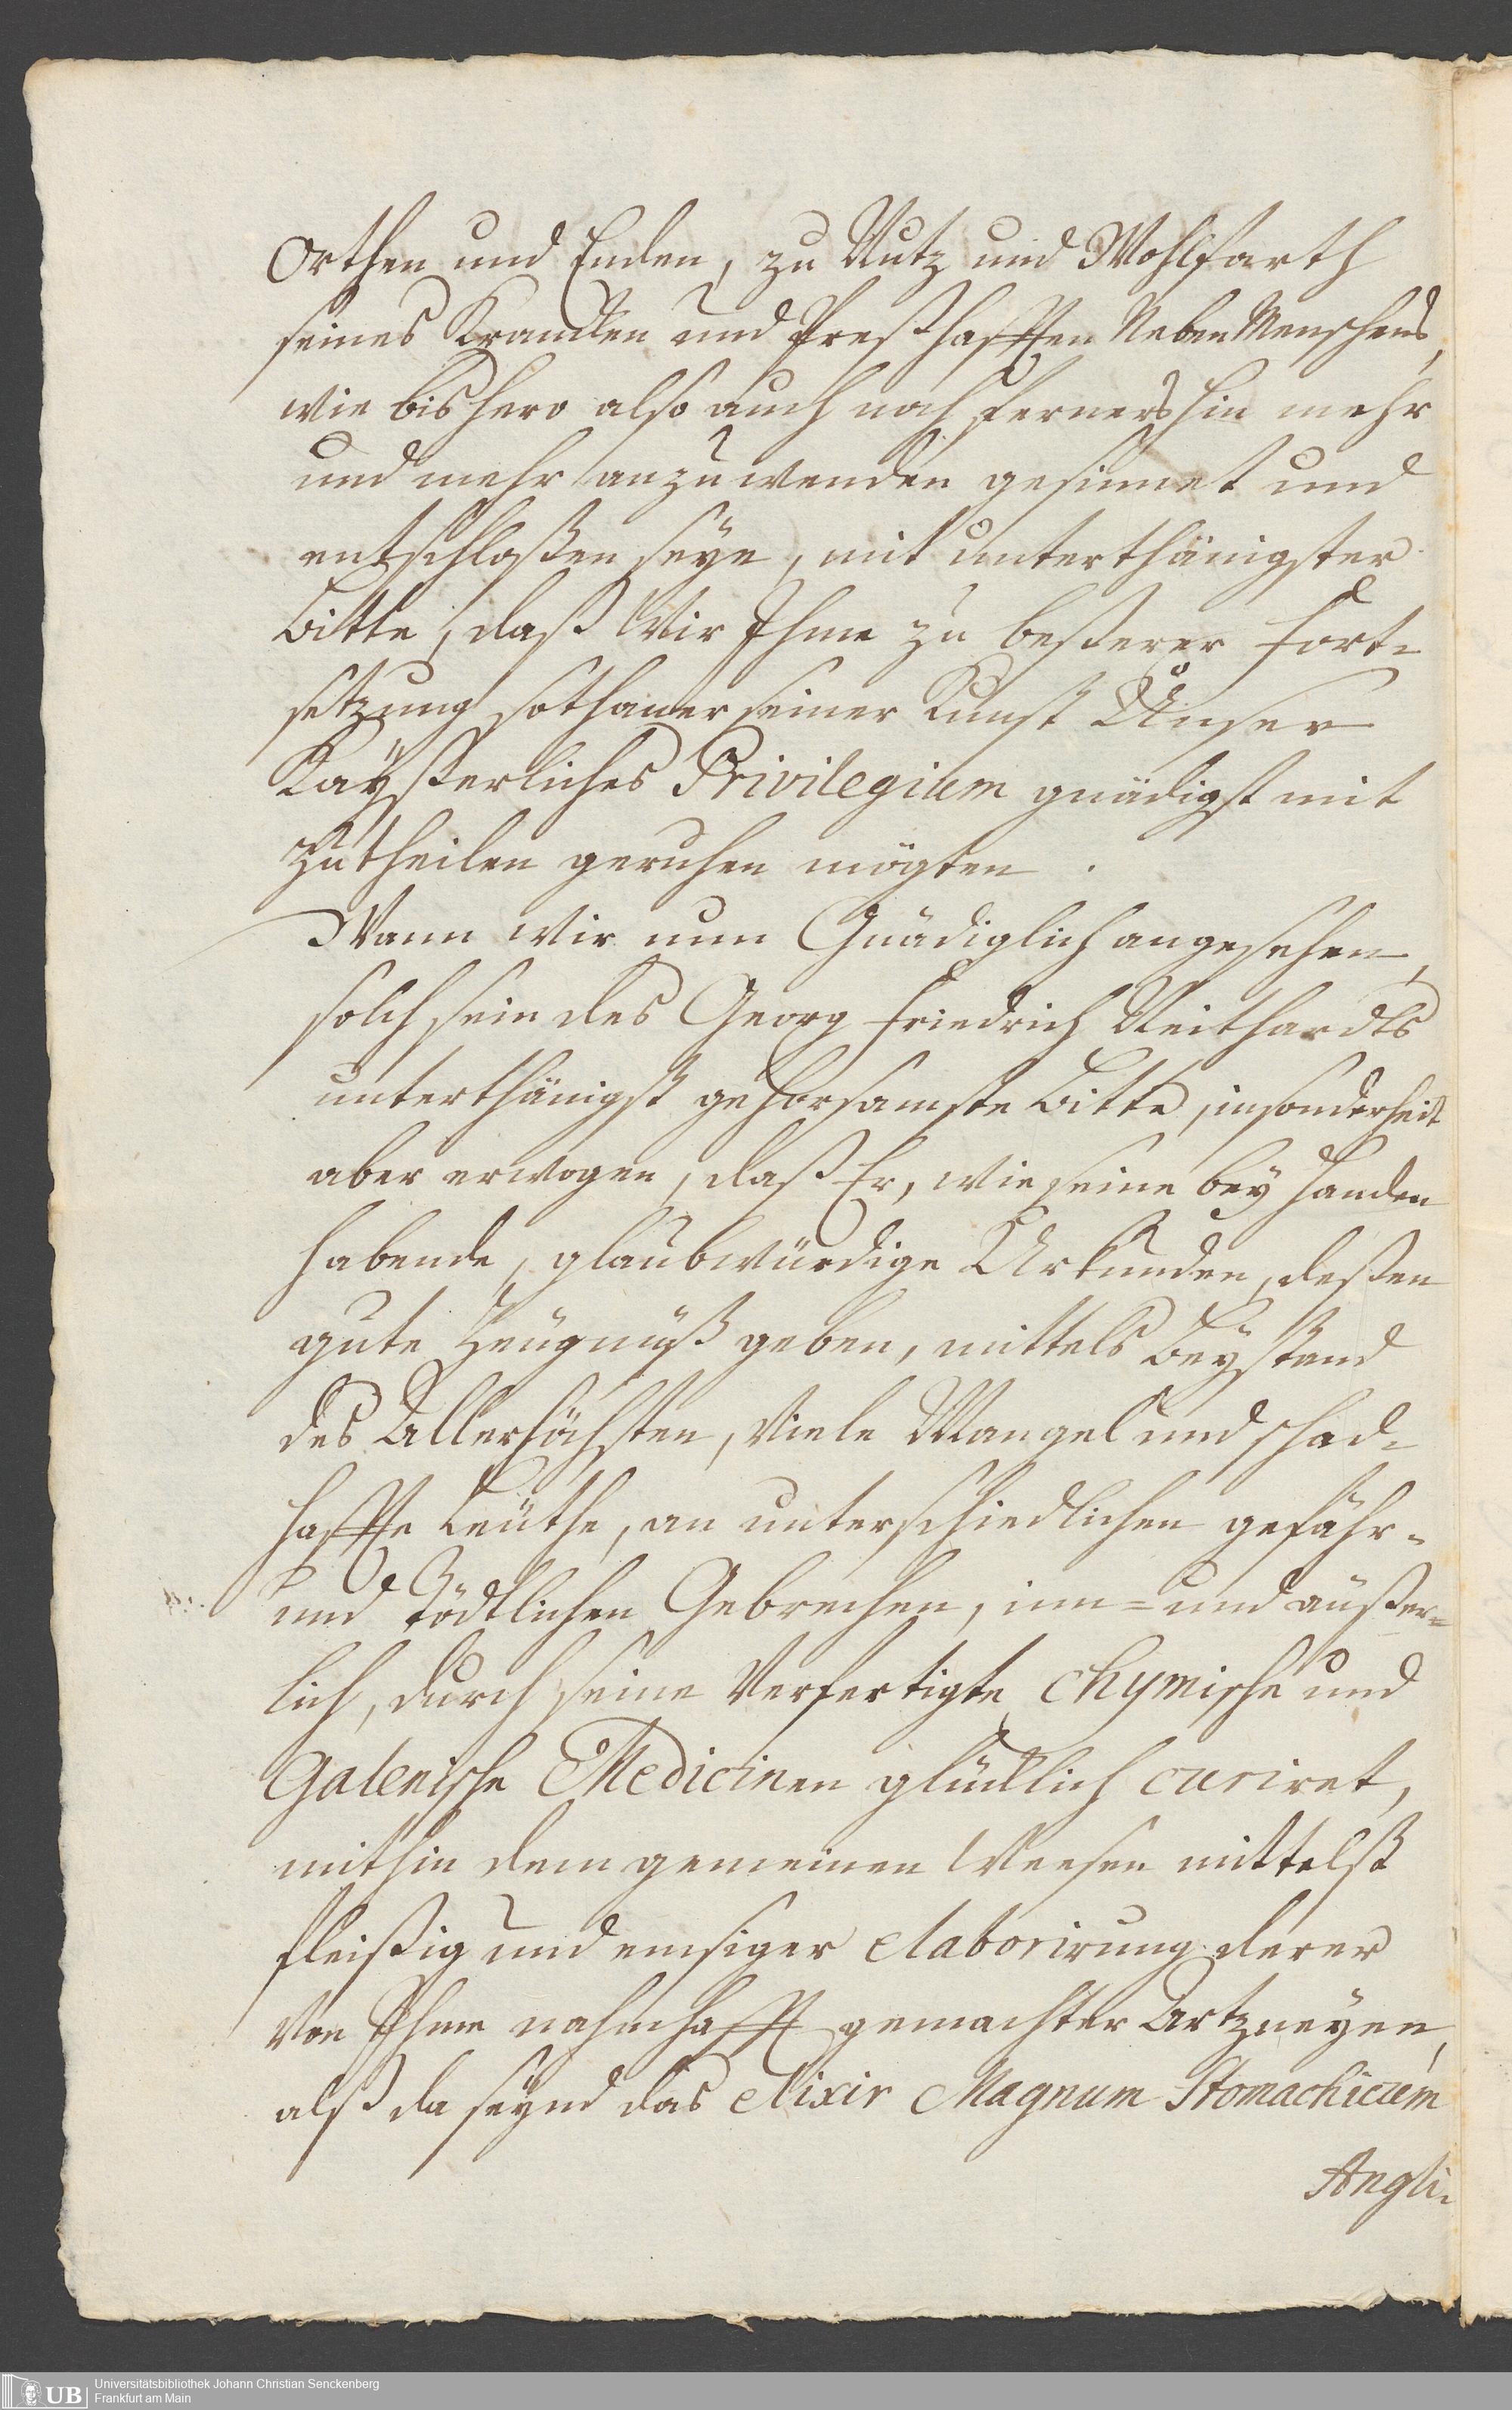 Orthen und Enden, zu Nutz und Wohlfarth
seines Krancken und Presthafften NebenMenschens,
wie bishero also auch noch fernershin mehr
und mehr anzuwenden gesinnet und
entschloßen seye, mit unterthänigster
Bitte, daß Wir Ihme zu beßerer Fort-
setzung sothaner seiner Kunst Unser
Kayßerliches Privilegium gnädigst mit
zutheilen geruhen mögten.
Wann Wir nun Gnädiglich angesehen,
solch sein des Georg Friedrich Neithardts
unterthänigst gehorsamste Bitte, insonderheit
aber erwogen, daß Er, wie seine bey Handen
habende, glaubwürdige Urkunden, deßen
gute Zeugnüß geben, mittels Beystand
des Allerhöchsten, Viele Mangel und schad-
haffte Leuthe, an unterschiedlichen gefähr-
und tödtlichen Gebrechen, inn- und äußer-
lich, durch seine Verfertigte chymische und
Galenische Medicinen glücklich curiret,
mithin dem gemeinen Weesen mittelst
fleißig und emsiger elaborirung derer
Von Ihme nahmhafft gemachter Artzneyen,
alß da seynd das Elixir Magnum Stomachicum
Angli-
UB Universitätsbibliothek Johann Christian Senckenberg
Frankfurt am Main